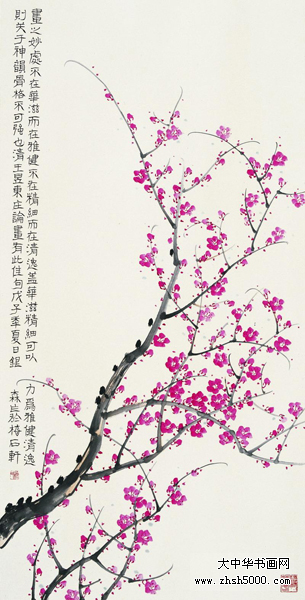 畫之妙處不在華滋而在雅健不在精細而在清逸蓋華滋精細可以力為雅健清逸
則关乎神韻骨格不可強也清王昱東庄論畫有此佳句戊子季夏日錕森於梅石軒
大中华书画网
www.zhsh5000.com